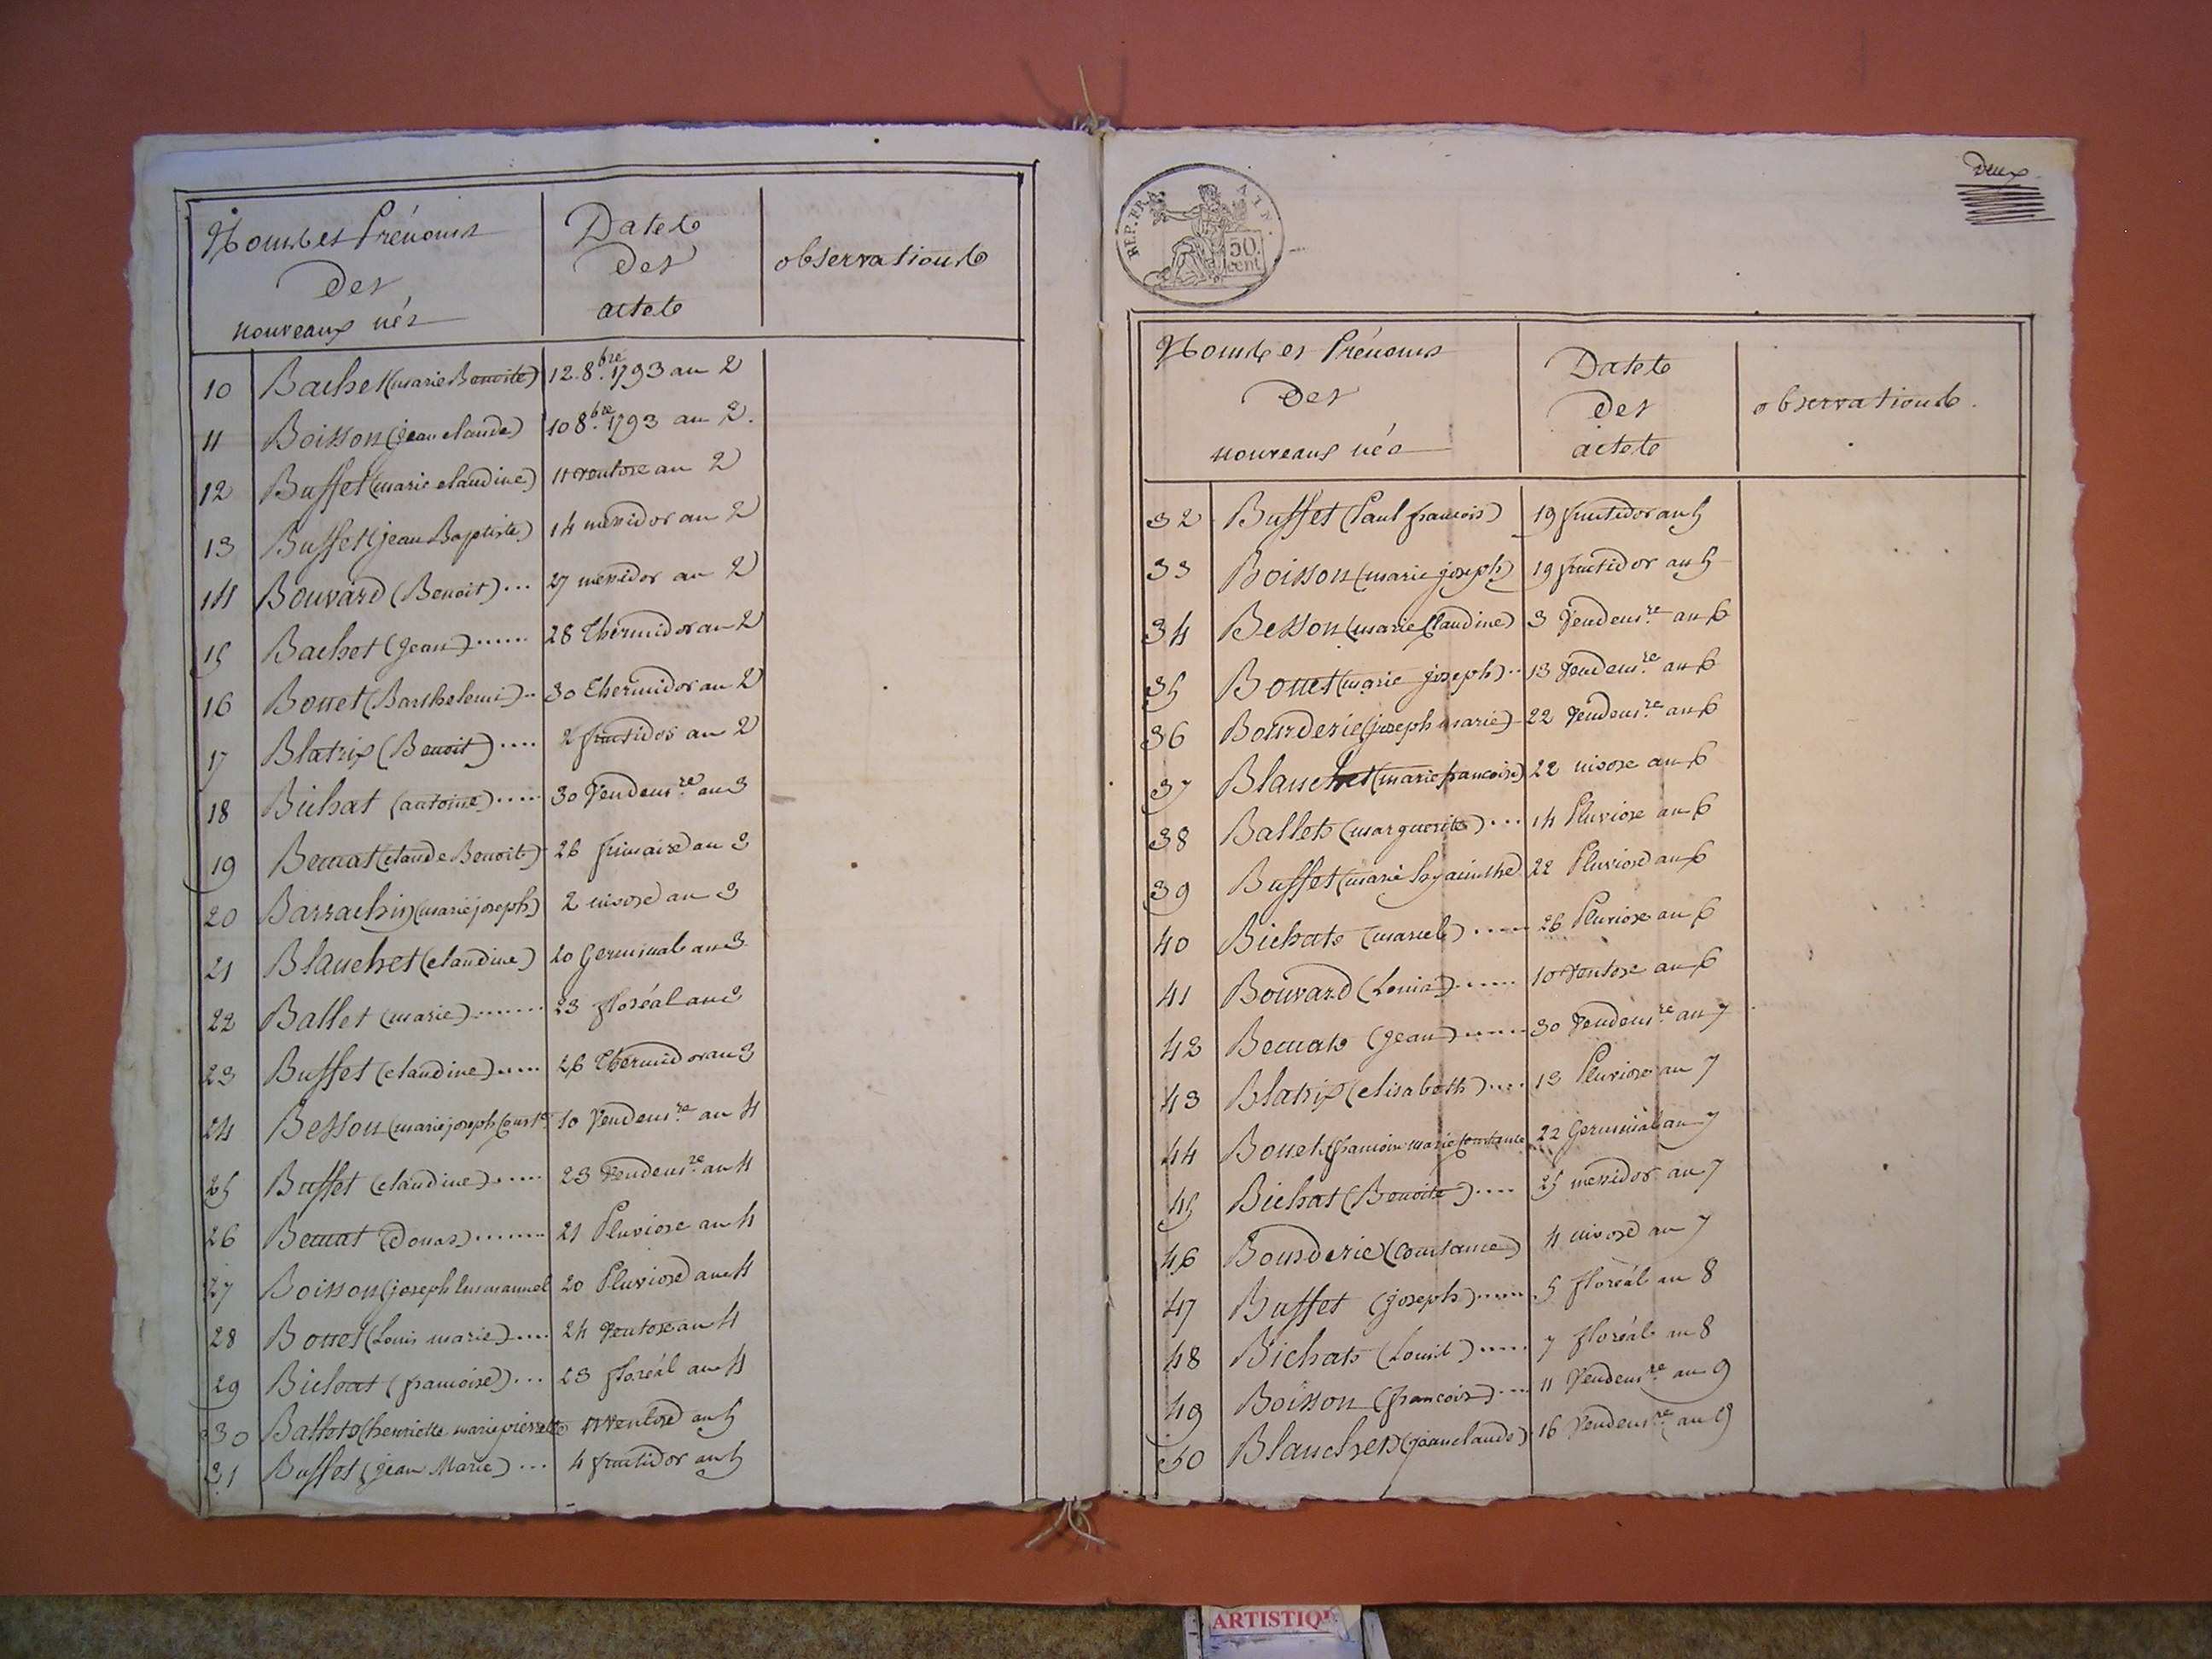 Noms et Prénoms
Des
nouveaux nés
Dates
Des
actes
observations
10 Bachet (marie Benoite) 12. 8.bre 1793 an 2
11 Boisson (jean claude) 10 8.bre 1793 an 2.
12 Buffet (marie claudine) 11 ventose an 2
13 Buffet (jean Baptiste) 14 messidor an 2
14 Bouvard (Benoit) ... 27 messidor an 2
15 Bachet (jean) ...... 28 Thermidor an 2
16 Bottet (Barthelemi) .. 30 Thermidor an 2
17 Blatrix (Benoit) .... 2 fructidor an 2
18 Bichat (antoine) ..... 30 Vendem.re an 3
19 Bernat (claude Benoit) 26 frimaire an 3
20 Barrachin (marie joseph) 2 nivose an 3
21 Blanchet (claudine) 20 Germinal an 3
22 Ballet (marie) ....... 23 floréal an 3
23 Buffet (claudine) ..... 26 Thermidor an 3
24 Besson (marie joseph Const.ce 10 Vendem.re an 4
25 Buffet (claudine) ..... 23 Vendem.re an 4
26 Bernat (Donat) ........ 21 Pluviose an 4
27 Boisson (joseph Emmanuel 20 Pluviose an 4
28 Bottet (Louis marie) .... 24 Ventose an 4
29 Bichat (francoise) ... 23 floréal an 4
30 Ballet (henriette marie pierrette 11 Ventose an 5
31 Buffet (jean Marie) ... 4 fructidor an 5
Deux
REP. FRA
50.
cent.
Noms et Prénoms
Des
nouveaux nés
Dates
Des
actes
observations.
32 Buffet (Paul francois) 19 fructidor an 5
33 Boisson (marie joseph) 19 fructidor an 5
34 Besson (marie Claudine) 3 Vendem.re an 6
35 Bottet (marie joseph) .. 13 Vendem.re an 6
36 Bourderie (joseph marie) 22 Vendem.re an 6
37 Blanchet (marie francoise) 22 nivose an 6
38 Ballet (marguerite) ... 14 Pluviose an 6
39 Buffet (marie hyacinthe) 22 Pluviose an 6
40 Bichat (marcel) ..... 26 Pluviose an 6
41 Bouvard (Louis) ...... 10 Ventose an 6
42 Bernat (jean) ...... 30 Vendem.re an 7
43 Blatrix (elisabeth) .... 13 Pluviose an 7
44 Bottet (francoise marie Constance 22 Germinal an 7
45 Bichat (Benoite) .... 25 messidor an 7
46 Bourderie (Constance) 4 nivose an 7
47 Buffet (joseph) ...... 5 floréal an 8
48 Bichat (Louis) ..... 7 floréal an 8
49 Boisson (francois) .... 11 Vendem.re an 9
50 Blanchet (jean claude) 16 Vendem.re an 9
ARTISTIQ